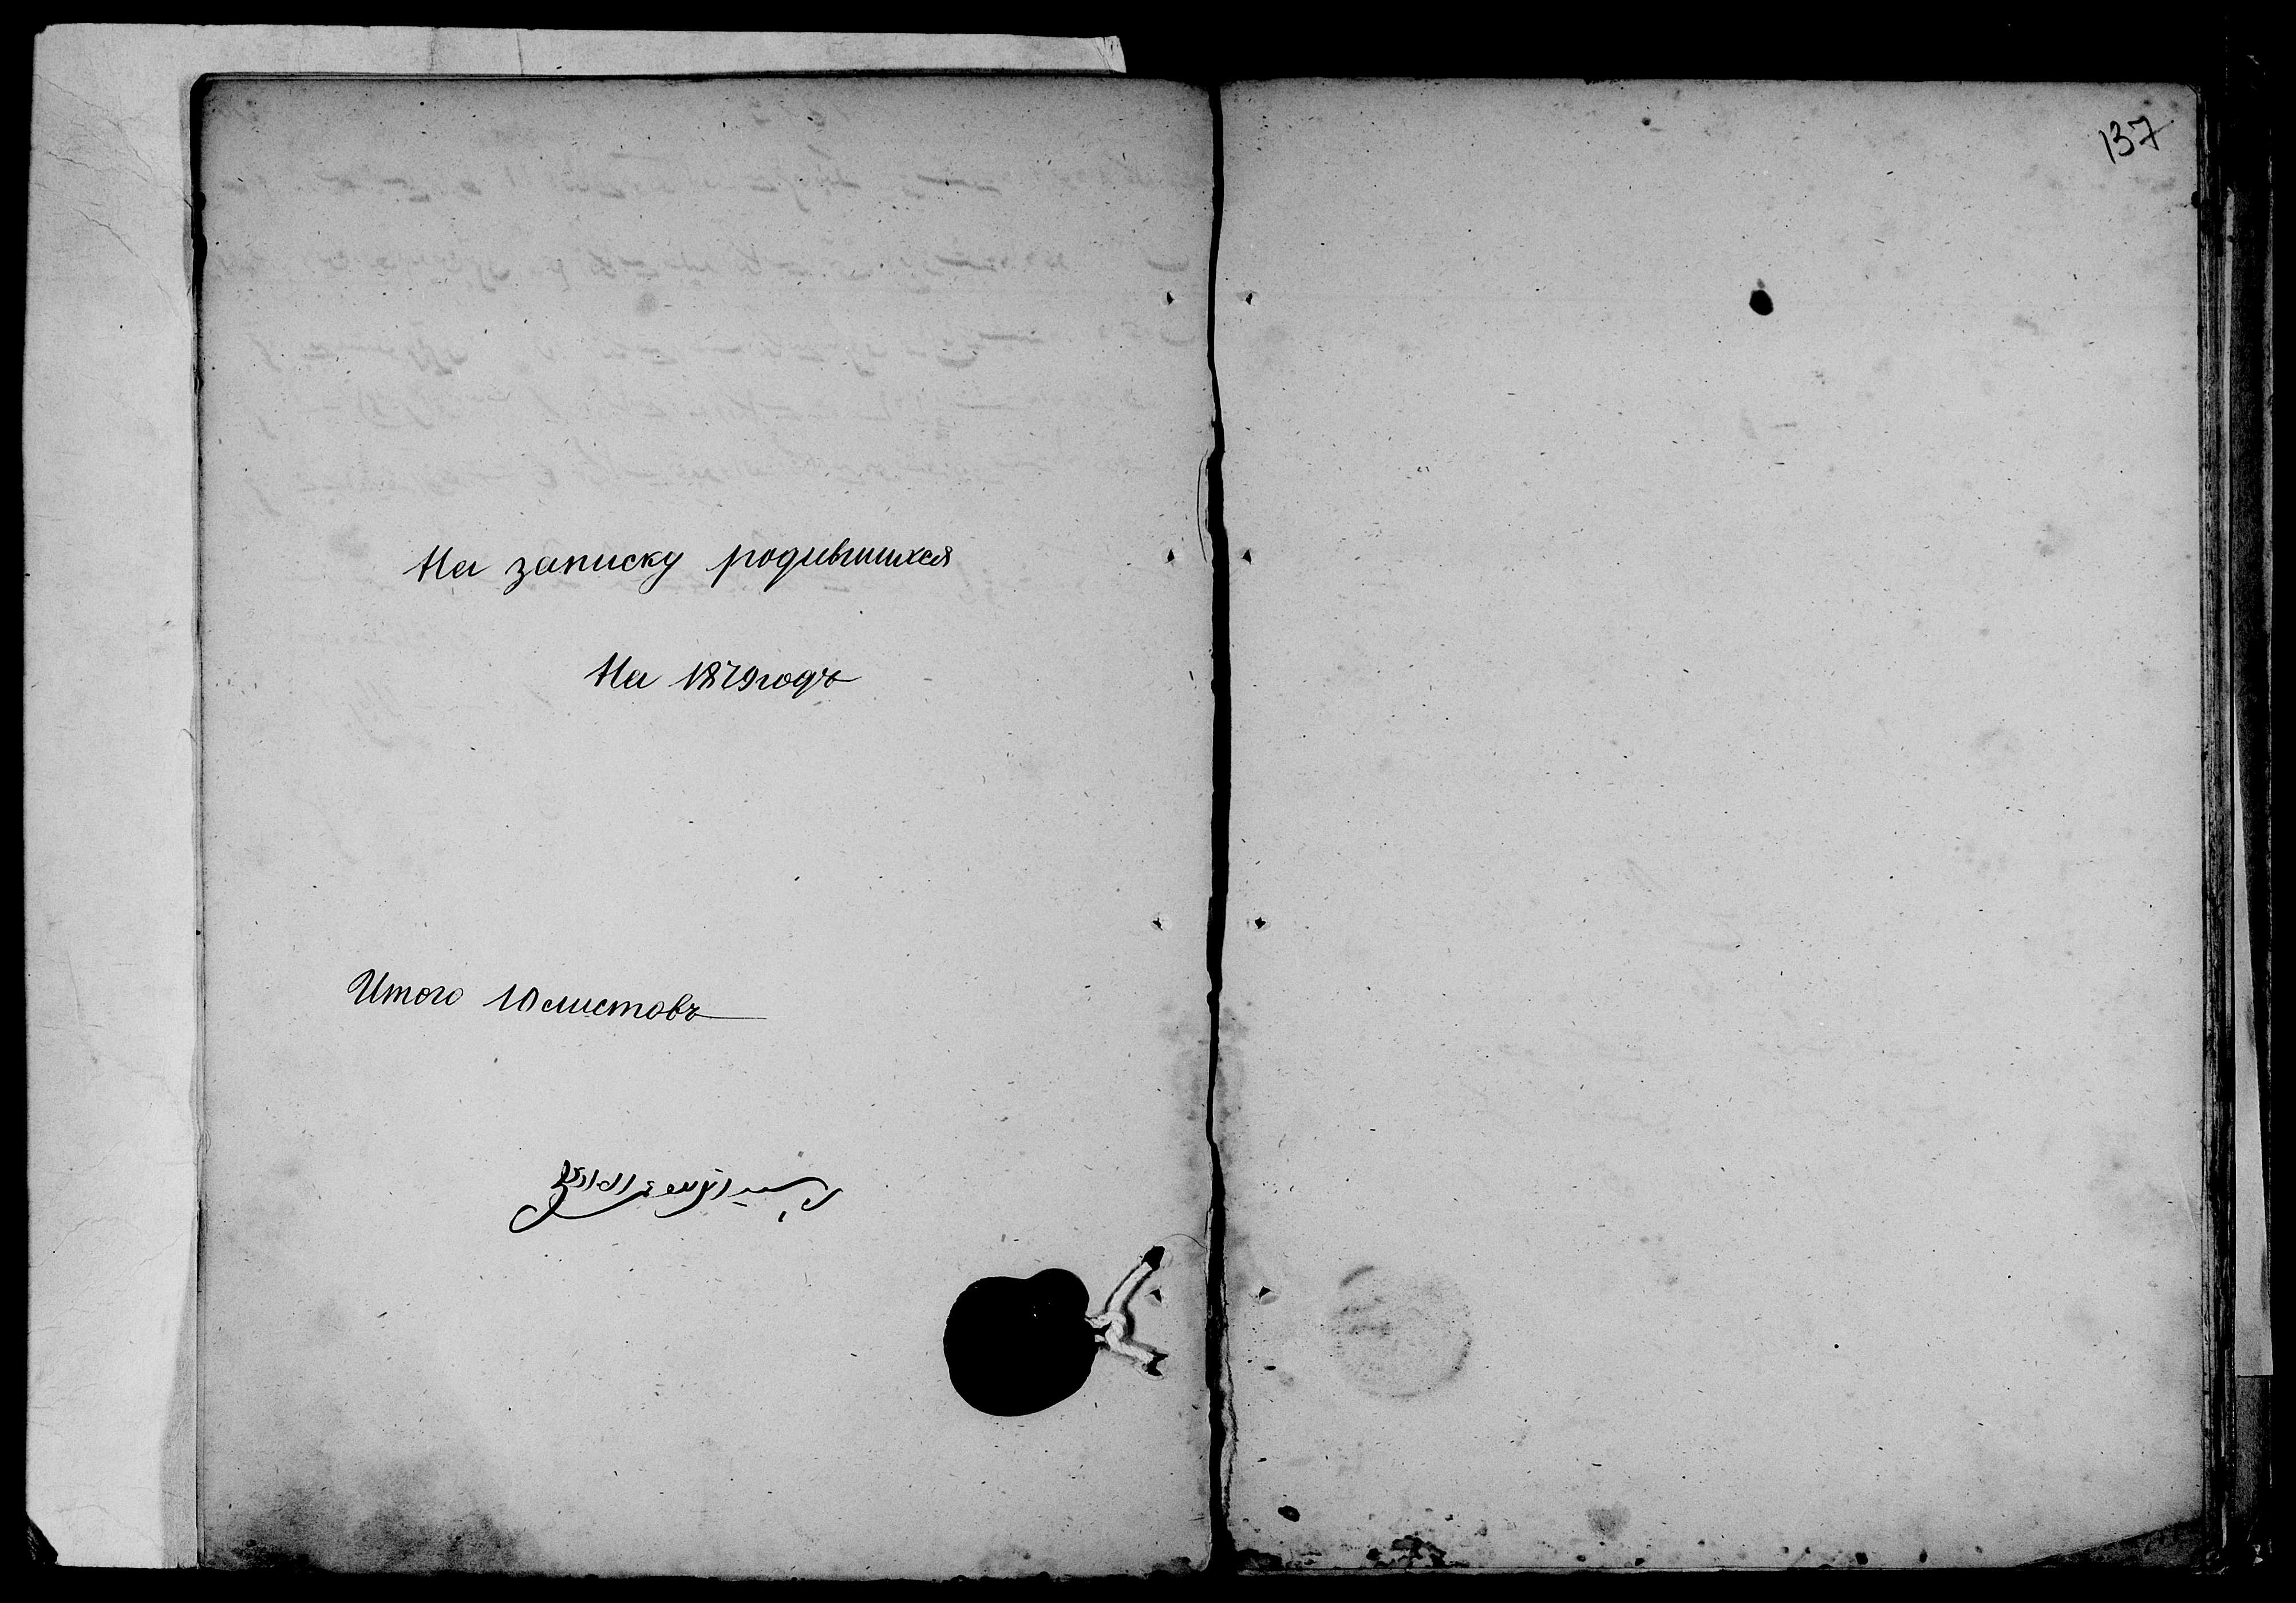 137
На записку родившихся
На 1879 годъ
Итого 10 листовъ